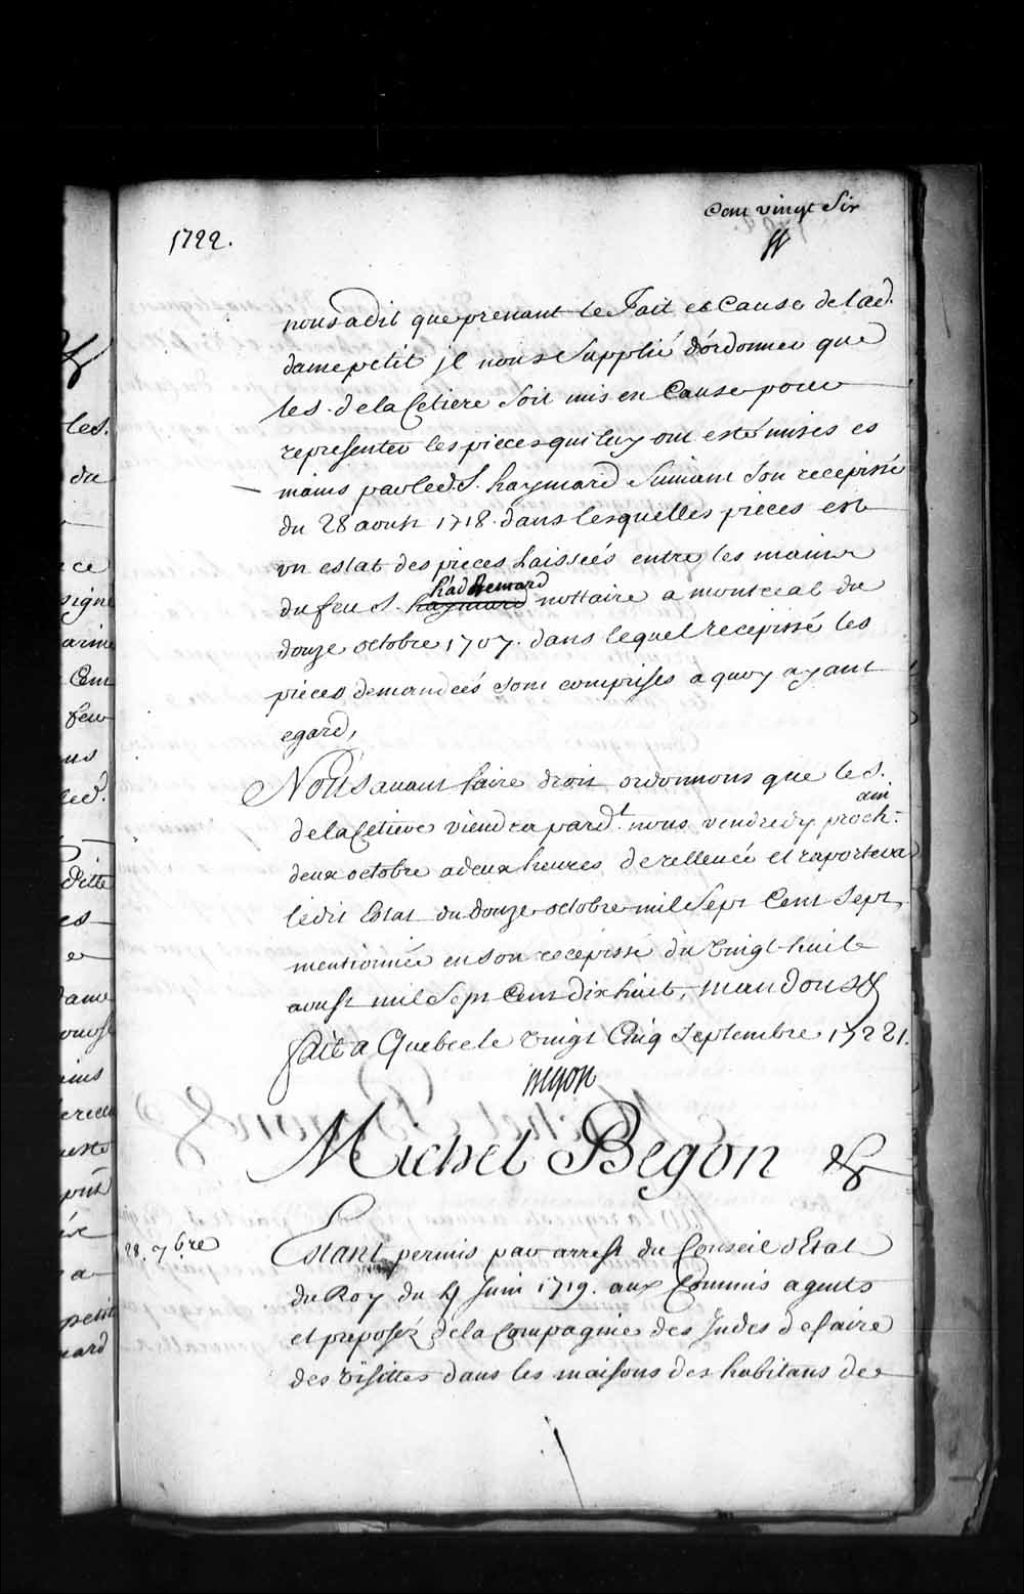 Cent vingt Six
1722.
nous a dit que prenant le Fait et Cause de lad.
dame petit jl nous Supplié d'ordonner que
le s. de la Cetiere Soit mis en Cause pour
representer les pieces qui luy ont esté mises es
mains par led. S. haymard Suivant Son recepissé
du 28 aoust 1718. dans lesquelles pieces est
un estat des pieces Laissées entre les mains
du feu S. haymard hadhemard nottaire a montreal du
douze octobre 1707. dans lequel recepissé les
pieces demandées sont comprises a quoy ayant
egard,
Nous avant faire droit ordonnons que le S.
de la Cetiere viendra pard.t nous vendredy proch.ain
deux octobre a deux heures de rellevée et raportera
ledit Estat du douze octobre mil Sept Cent Sept,
mentionnée en son recepissé du vingt huit
aoust mil Sept Cent dix huit, mandons &
fait a Quebec le vingt Cinq Septembre 1722.
Begon
Michel Begon &
28. 7bre
Estant permis par arrest du Conseil d'Estat
du Roy du 4 Juin 1719. aux Commis agents
et preposéz de la Compagnie des Indes de faire
des visittes dans les maisons des habitans de
les.
du
ce
signé
Cent
feu
led.
ditte
es
e
dame
a
petit